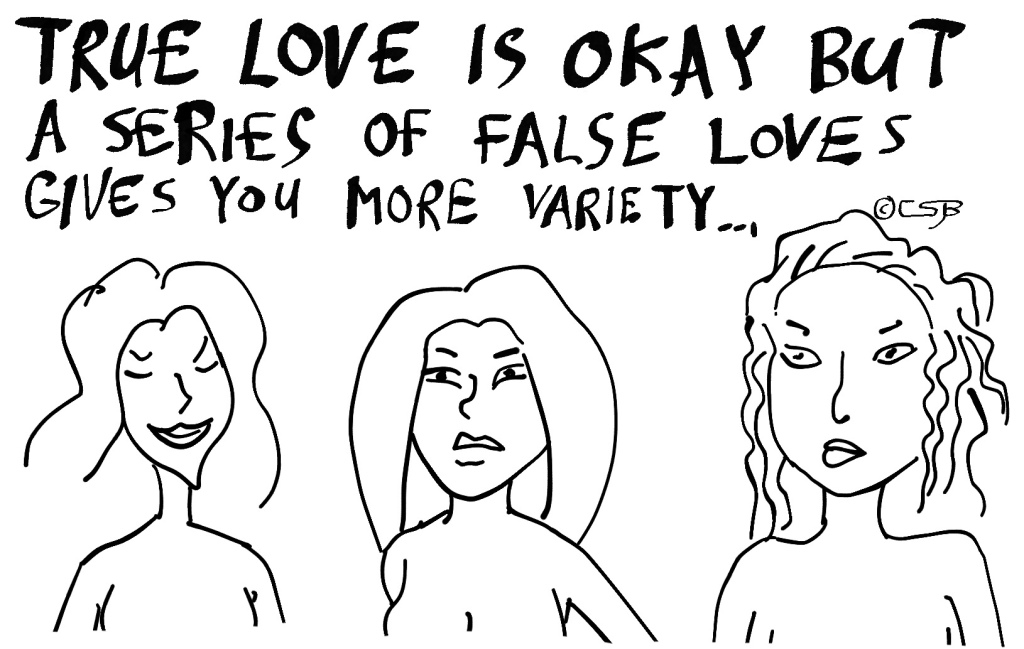 TRUE LOVE IS OKAY BUT
A SERIES OF FALSE LOVES
GIVES YOU MORE VARIETY...
©CSB